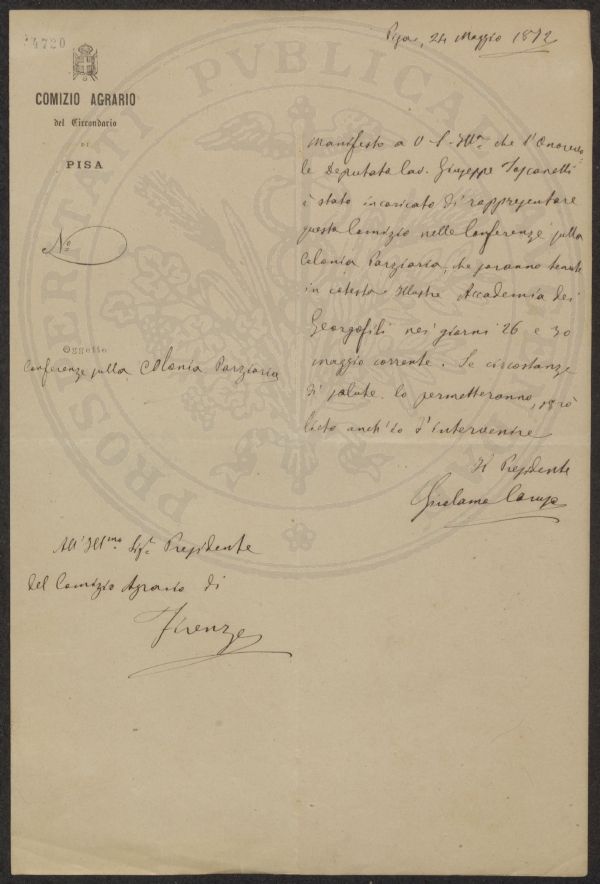 4720
COMIZIO AGRARIO
del Circondario
DI
PISA
Nº
Oggetto
Conferenze sulla Colonia Parziaria
Pisa, 24 Maggio 1872
Manifesto a V. S. Illma che l'Onorevo
le Deputato Cav. Giuseppe Toscanelli
è stato incaricato di rappresentare
questo Comizio nelle Conferenze sulla
Colonia Parziaria, che saranno tenute
in cotesta Illustre Accademia dei
Georgofili nei giorni 26 e 30
maggio corrente. Se circostanze
di salute lo permetteranno, sarò
lieto anch'io d'intervenire
Il Presidente
Girolamo Caruso
All'Illmo Sigr Presidente
del Comizio Agrario di
Firenze
PROSPERITATI PVBLICAE